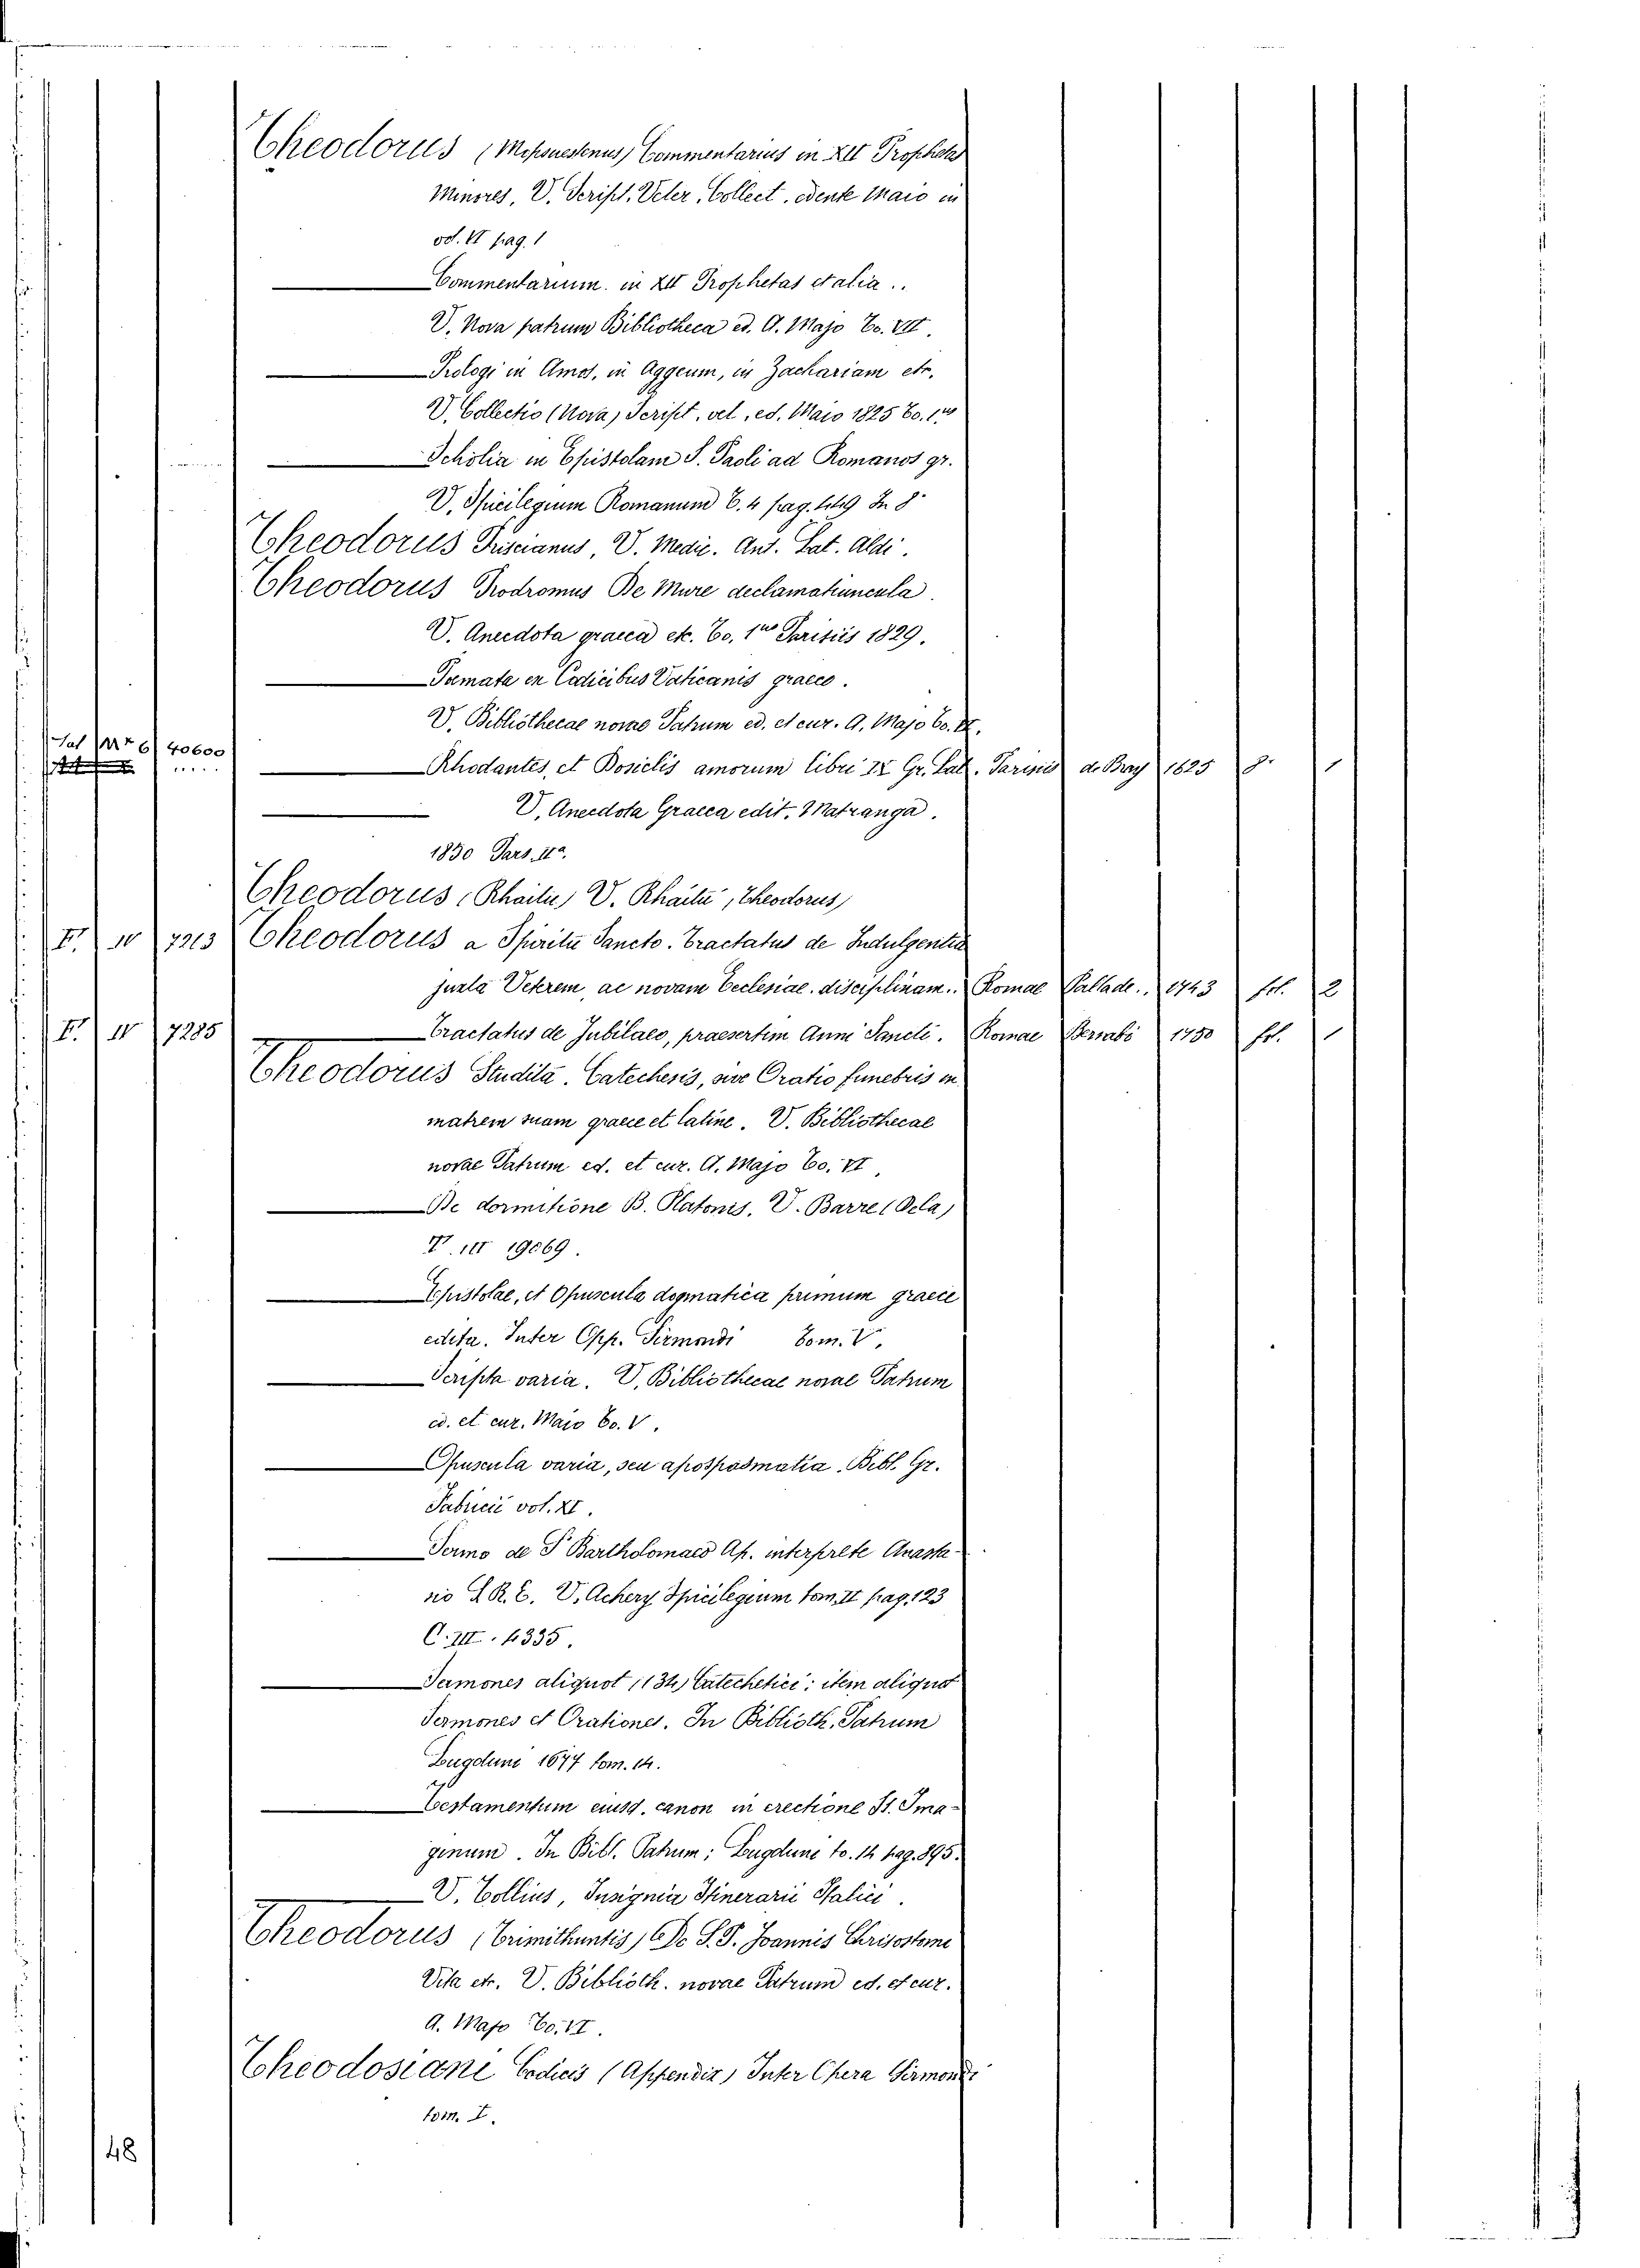 Theodorus (Mopsuestenus) Commentarius in XII Prophetas
Minores, V. Script. Veter. Collect. edente Maio in
vol. VI pag. 1
Commentarium in XII Prophetas et alia..
V. Nova patrum Bibliotheca ed. A. Majo To. VII.
Prologi in Amos, in Aggeum, in Zachariam etc.
V. Collectio (Nova) Script. vet. ed. Maio 1825 To. 1us
Scholia in Epistolam S. Paoli ad Romanos gr.
V. Spicilegium Romanum T. 4 pag. 499 In 8°
Theodorus Priscianus, V. Medic. Ant. Lat. Aldi.
Theodorus Prodromus De Mure declamatiuncula.
V. Anecdota graeca etc. To. 1us Parisiis 1829.
Poemata ex Codicibus Vaticanis graece.
V. Bibliothecae novae Patrum ed. et cur. A. Majo To. VI.
6 40600 Rhodantes, et Dosiclis amorum libri IX Gr. Lat. Parisiis de Bray 1625 8° 1
V. Anecdota Graeca edit. Matranga.
1850 Pars IIa.
Theodorus (Rhaitu) V. Rhaitu, (Theodorus)
F. IV 7213 Theodorus a Spiritu Sancto. Tractatus de Indulgentia
juxla Veterem, ac novam Ecclesiae disciplinam.. Romae Pallade.. 1743 fol. 2
F. IV 7285 Tractatus de Jubilaeo, praesertim Anni Sancti. Romae Bernabò 1750 fol. 1
Theodorus Studita. Catechesis, sive Oratio funebris in
matrem suam graece et latine. V. Bibliothecae
novae Patrum ed. et cur. A. Majo To. VI.
De dormitione B. Platonis, V. Barre (Dela)
V. III 19069.
Epistolae, et Opuscula dogmatica primum graece
edita. Inter Opp. Sirmondi Tom. V.
Scripta varia. V. Bibliothecae novae Patrum
ed. et cur. Maio To. V.
Opuscula varia, seu apospasmatia. Bibl. Gr.
Fabricii vol. XI.
Sermo de S. Bartholomaeo Ap. interprete Anasta-
sio S. R. E. V. Achery Spicilegium tom. II pag. 123
C. III. 4335.
Sermones aliquot (134) Catechetici; item aliquot
Sermones et Orationes. In Biblioth. Patrum
Lugduni 1677 tom. 14.
Testamentum eiusd. canon in erectione SS. Ima-
ginum. In Bibl. Patrum; Lugduni to. 14 pag. 895.
V. Tollius, Insignia Itinerarii Italici.
Theodorus (Trimithuntis) De S. P. Joannis Chrisostomi
Vita etc. V. Biblioth. novae Patrum ed. et cur.
A. Majo To. VI.
Theodosiani Codicis (Appendix) Inter Opera Sirmondi
tom. I.
48